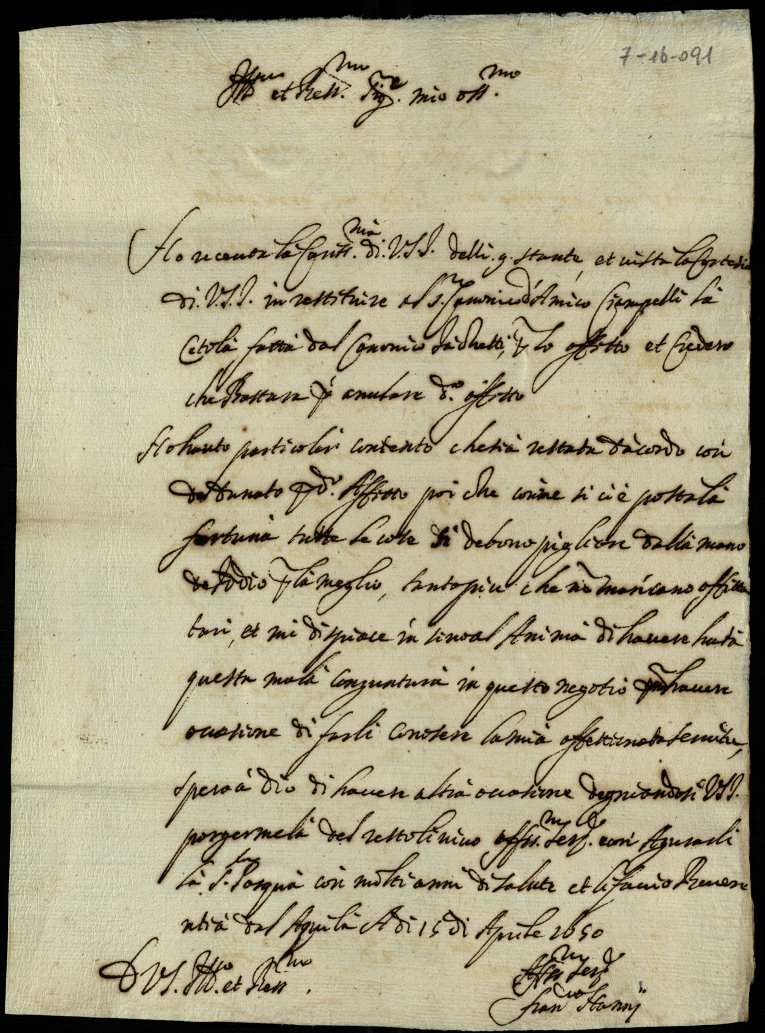 7-16-091
Ill.mo et Rev.mo Sig.re mio oss.mo
Ho receuta la Cariss.ma di V.S.I. delli 9 stante, et vista la Cortesia
di V.S.I. in restituire al s.r Canonico d'Amico Ciampelli la
Cetola fatta dal Canonico per lo affitto et Credero
che Bastara p anulare d.o affitto
Ho hauto particolar contento che sia restata d'acordo con
Donato d.o Affitto poi che come si ci è posta la
fortuna tutte le cose si debono pigliare dalla mano
de Dio p la meglio, tanto piu che nō mancano affitta
tori, et mi dispiace in sino al Anima di havere hauta
questa mala congiuntura in questo negotio havere
occasione di farli conoscere la mia affettionata servitu,
spero a Dio di havere altra occasione degniandosi V.S.I.
porgermela del resto li vivo aff.mo Ser.re con Agurarli
la S.ta Pasqua con molti anni di salute et li facio Reveren
ntia dal Aquila A di 15 di Aprile 1650
D V.S. Ill.ma et Rev.ma
Aff.mo Ser.re
Fran.co